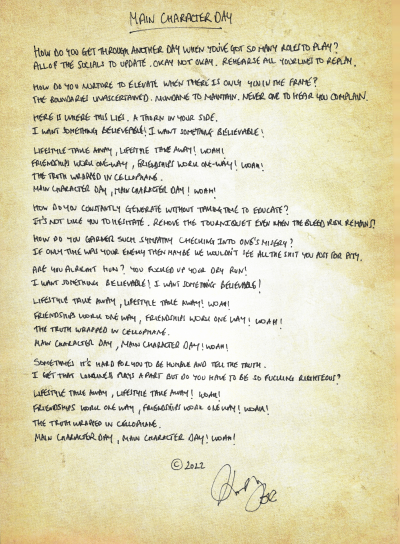 MAIN CHARACTER DAY
HOW DO YOU GET THROUGH ANOTHER DAY WHEN YOU'VE GOT SO MANY ROLES TO PLAY?
ALL OF THE SOCIALS TO UPDATE. OKAY NOT OKAY. REHEARSE ALL YOUR LINES TO REPLAY.
HOW DO YOU NURTURE TO ELEVATE WHEN THERE IS ONLY YOU IN THE FRAME?
THE BOUNDARIES UNASCERTAINED. MUNDANE TO MAINTAIN. NEVER ONE TO HEAR YOU COMPLAIN.
HERE IS WHERE THIS LIES. A THORN IN YOUR SIDE.
I WANT SOMETHING BELIEVEABLE! I WANT SOMETHING BELIEVABLE!
LIFESTYLE TAKE AWAY, LIFESTYLE TAKE AWAY! WOAH!
FRIENDSHIPS WORK ONE-WAY, FRIENDSHIPS WORK ONE-WAY! WOAH!
THE TRUTH WRAPPED IN CELLOPHANE.
MAIN CHARACTER DAY, MAIN CHARACTER DAY! WOAH!
HOW DO YOU CONSTANTLY GENERATE WITHOUT TAKING TIME TO EDUCATE?
IT'S NOT LIKE YOU TO HESITATE. REMOVE THE TOURNIQUET EVEN WHEN THE BLEED RISK REMAINS.
HOW DO YOU GARNER SUCH SYMPATHY CHECKING INTO ONE'S MISERY?
IF ONLY TIME WAS YOUR ENEMY THEN MAYBE WE WOULDN'T SEE ALL THE SHIT YOU POST FOR PITY.
ARE YOU ALRIGHT HUN? YOU FUCKED UP YOUR DRY RUN!
I WANT SOMETHING BELIEVABLE! I WANT SOMETHING BELIEVABLE!
LIFESTYLE TAKE AWAY, LIFESTYLE TAKE AWAY! WOAH!
FRIENDSHIPS WORK ONE WAY, FRIENDSHIPS WORK ONE WAY! WOAH!
THE TRUTH WRAPPED IN CELLOPHANE.
MAIN CHARACTER DAY, MAIN CHARACTER DAY! WOAH!
SOMETIMES IT'S HARD FOR YOU TO BE HUMBLE AND TELL THE TRUTH.
I GET THAT LONELINESS PLAYS A PART BUT DO YOU HAVE TO BE SO FUCKING RIGHTEOUS?
LIFESTYLE TAKE AWAY, LIFESTYLE TAKE AWAY! WOAH!
FRIENDSHIPS WORK ONE WAY, FRIENDSHIPS WORK ONE WAY! WOAH!
THE TRUTH WRAPPED IN CELLOPHANE.
MAIN CHARACTER DAY, MAIN CHARACTER DAY! WOAH!
© 2022